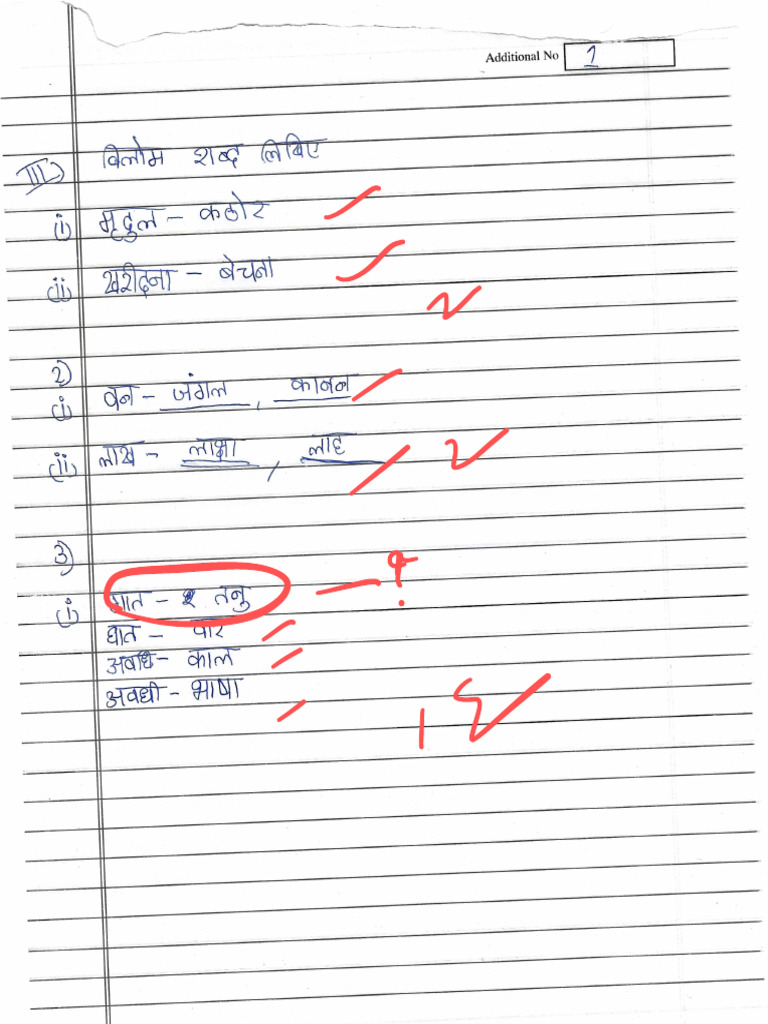 Additional No 1
III) विलोम शब्द लिखिए
(i) मृदुल - कठोर
(ii) खरीदना - बेचना
2)
(i) वन - जंगल, कानन
(ii) लाख - लाक्षा, लाह
3)
(i) घात - तनु
घात - वार
अवधि - काल
अवधी - भाषा
?
1